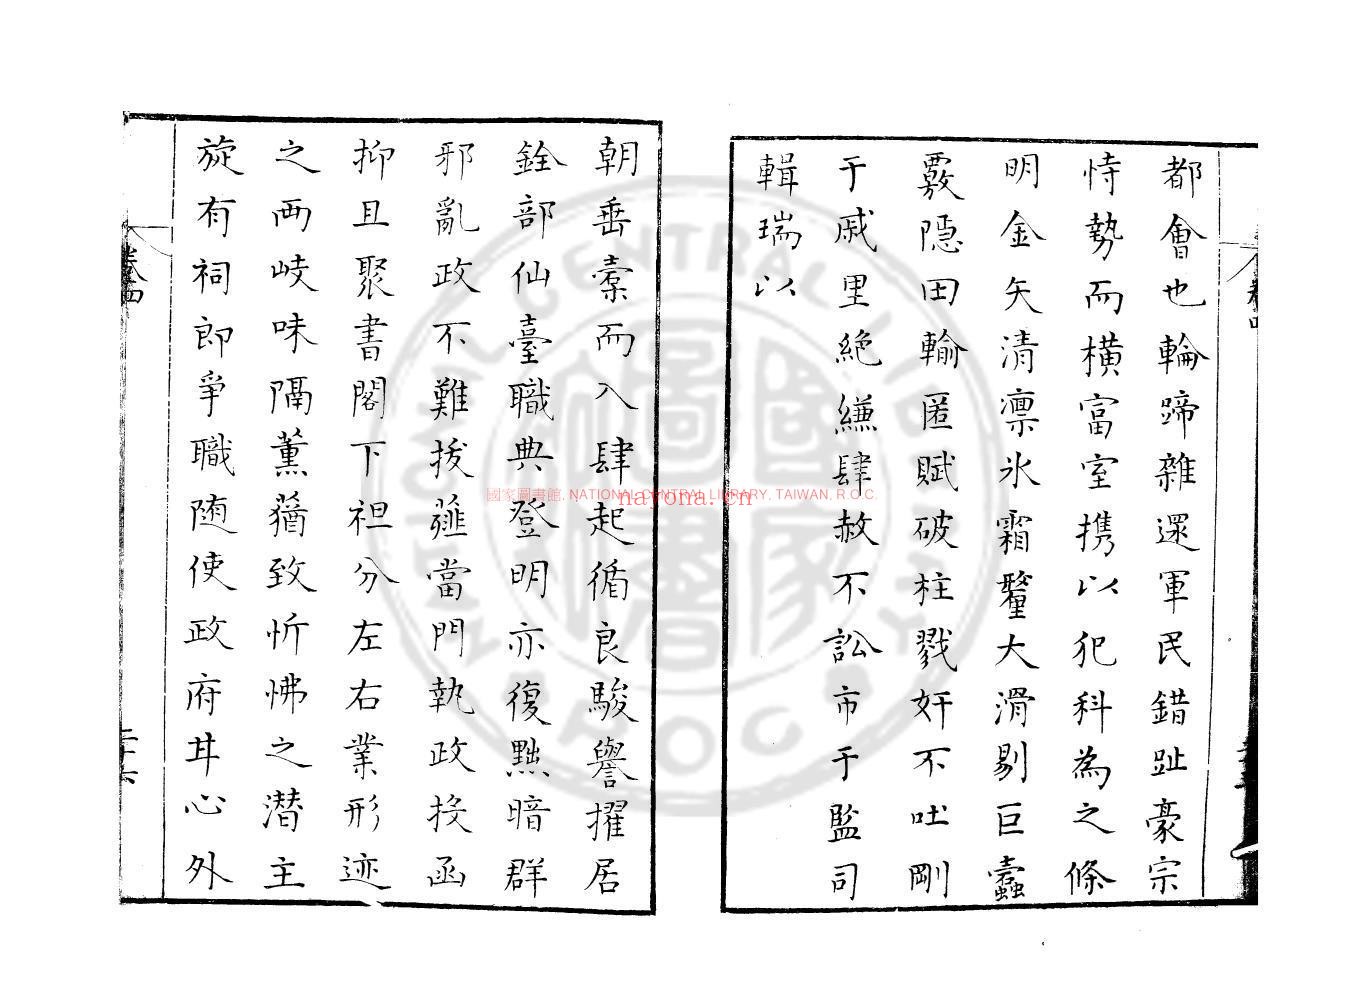 都會也輪蹄雜還軍民錯趾豪宗
恃勢而橫富室攜以犯科為之條
明金矢清凛氷霜釐大滑剔巨蠹
覈隱田輸匿賦破柱戮奸不吐剛
于戚里絶縑肆赦不訟市于監司
輯瑞以
朝垂橐而入肆起循良駿譽擢居
銓部仙臺職典登明亦復黜暗群
邪亂政不難拔薤當門執政投函
抑且聚書閣下袒分左右業形迹
之两岐味隔薰蕕致忻怫之潜主
旋有祠郎爭職随使政府甘心外
卷四
二十六
國家圖書館, NATIONAL CENTRAL LIBRARY, TAIWAN, R.O.C.
nayona.cn
NATIONAL CENTRAL LIBRARY
R.O.C.
國家圖書館